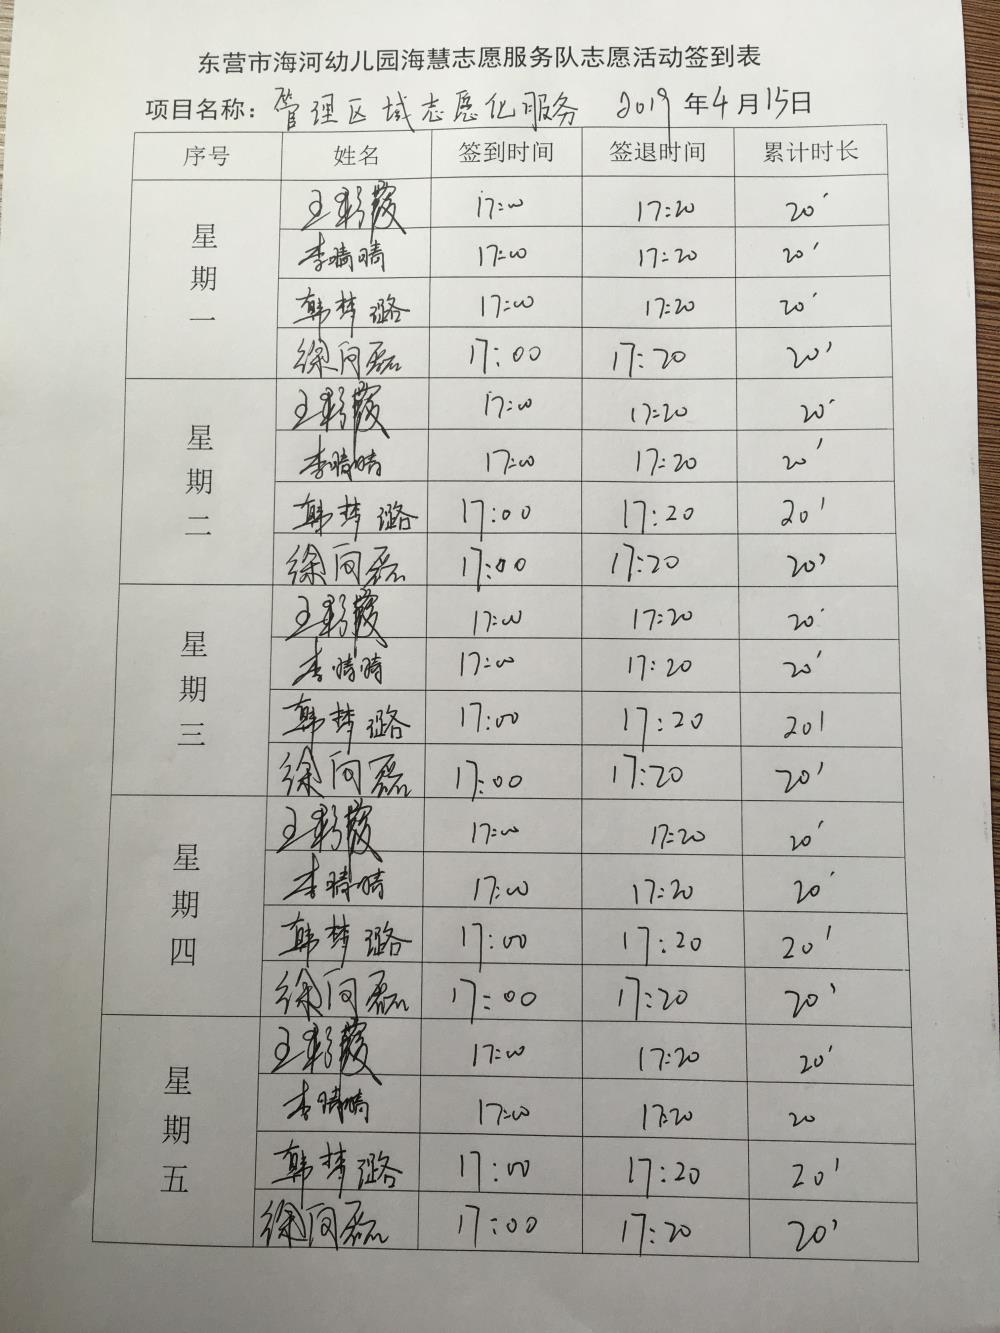 东营市海河幼儿园海慧志愿服务队志愿活动签到表
项目名称：管理区域志愿化服务 2019 年4月15日
序号 姓名 签到时间 签退时间 累计时长
星期一
王彩霞 17:00 17:20 20'
李晴晴 17:00 17:20 20'
韩梦璐 17:00 17:20 20'
徐向磊 17:00 17:20 20'
星期二
王彩霞 17:00 17:20 20'
李晴晴 17:00 17:20 20'
韩梦璐 17:00 17:20 20'
徐向磊 17:00 17:20 20'
星期三
王彩霞 17:00 17:20 20'
李晴晴 17:00 17:20 20'
韩梦璐 17:00 17:20 20'
徐向磊 17:00 17:20 20'
星期四
王彩霞 17:00 17:20 20'
李晴晴 17:00 17:20 20'
韩梦璐 17:00 17:20 20'
徐向磊 17:00 17:20 20'
星期五
王彩霞 17:00 17:20 20'
李晴晴 17:00 17:20 20
韩梦璐 17:00 17:20 20'
徐向磊 17:00 17:20 20'